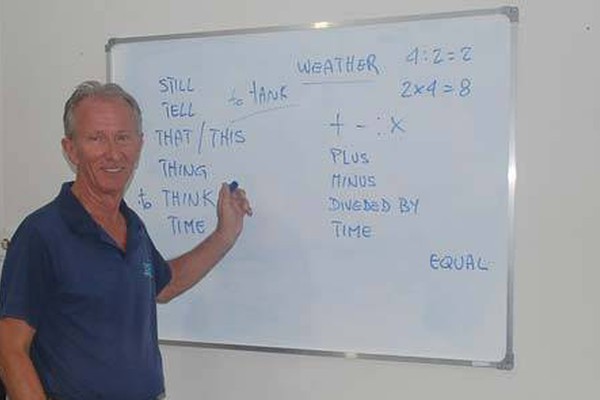 STILL
TELL
THAT / THIS
THING
to THINK
TIME
to TANK
WEATHER
4:2=2
2x4=8
+ - : x
PLUS
MINUS
DIVEDED BY
TIME
EQUAL